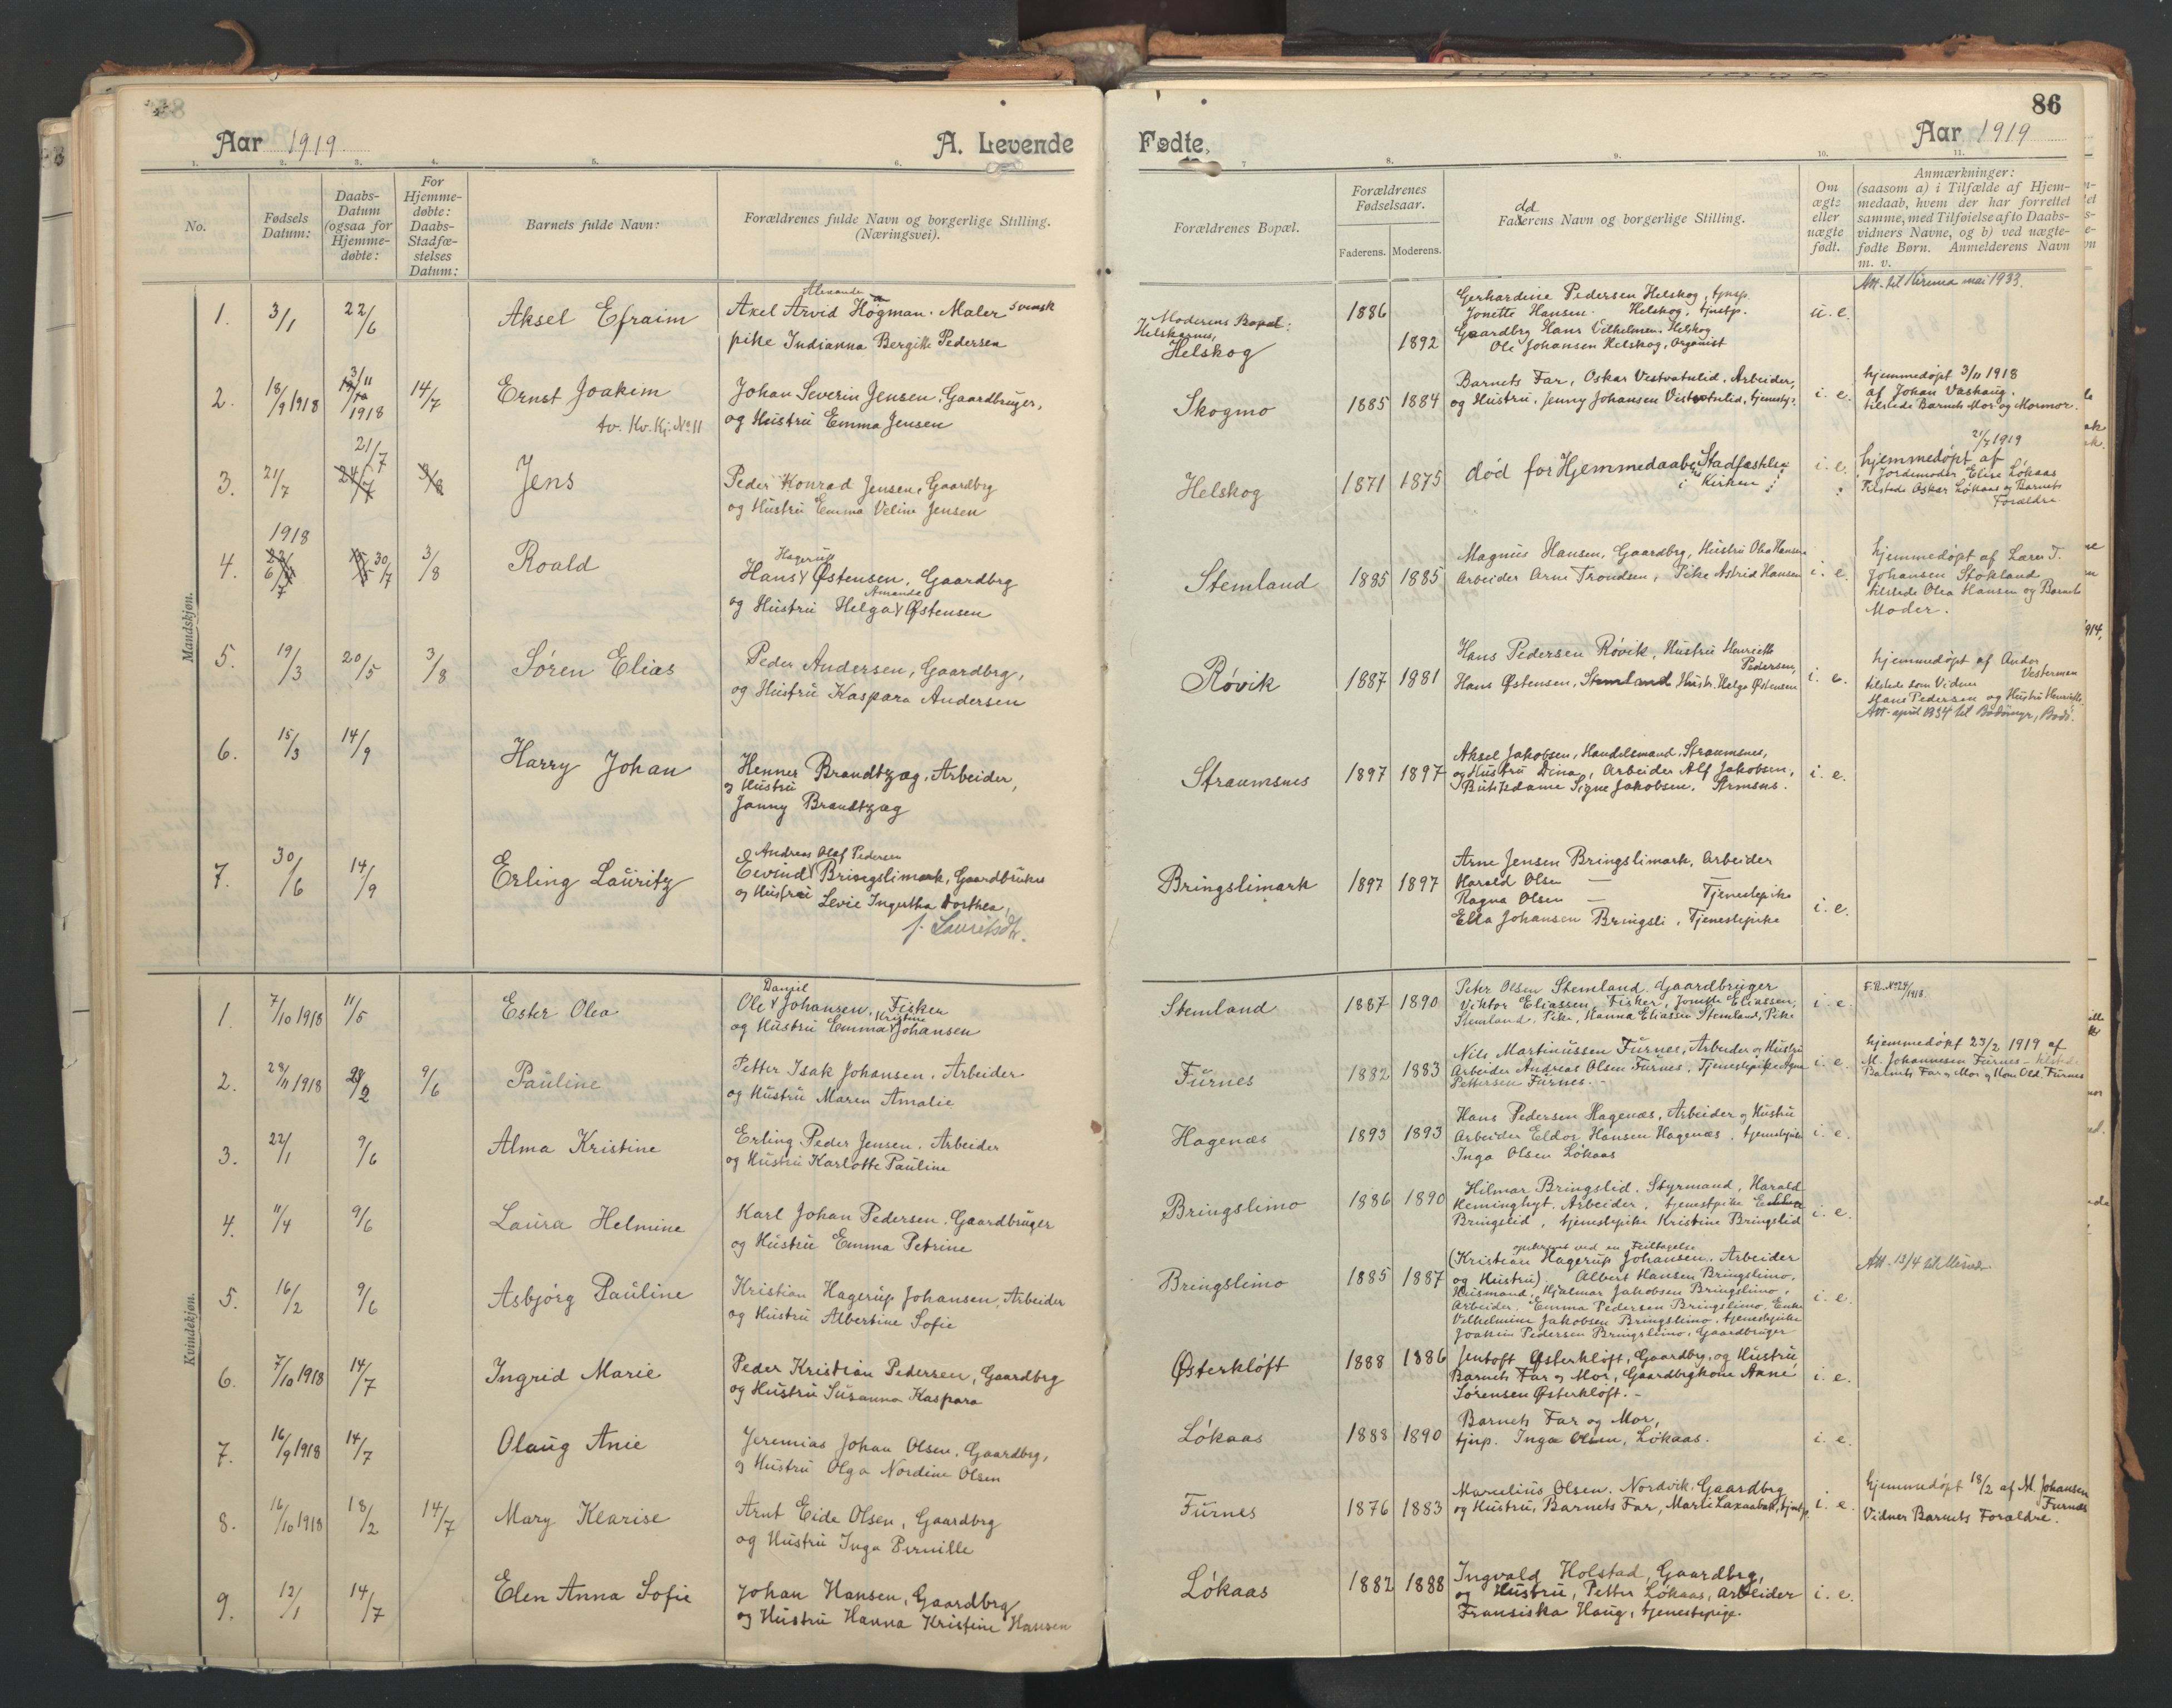 Aar 1919
A. Levende
1. 2. 3. 4. 5. 6.
No.
Fødsels Datum:
Daabs-Datum (ogsaa for Hjemme-døbte:
For Hjemme-døbte: Daabs-Stadfæ-stelses Datum:
Barnets fulde Navn:
Forældrenes fulde Navn og borgerlige Stilling. (Næringsvei).
Mandskjøn.
1. 3/1 22/6 Aksel Efraim
Alexander
Axel Arvid Högman. Maler svensk
pike Indianna Bergitte Pedersen
2. 18/9 1918 3/11 1918 14/7 Ernst Joakim
tv. Kv. Kj. No 11
Johan Severin Jensen, Gaardbruger,
og Hustru Emma Jensen
3. 21/7 21/7 24/7 3/8 Jens
Peder Konrad Jensen, Gaardbrg
og Hustru Emma Veline Jensen
4. 1918 6/7 30/7 3/8 Roald
Hagerup
Hans Østensen, Gaardbrg
Amanda
og Hustru Helga Østensen
5. 19/3 20/5 3/8 Sören Elias
Peder Andersen, Gaardbrg,
og Hustru Kaspara Andersen
6. 15/3 14/9 Harry Johan
Henner Brandtzæg, Arbeider,
og Hustru
Janny Brandtzæg
7. 30/6 14/9 Erling Lauritz
Andreas Olaf Pedersen
Eivind Bringslimark, Gaardbruker
og Hustru Levie Ingertha Dorthea,
f. Lauritsdtr.
Kvindekjøn.
1. 7/10 1918 11/5 Ester Olea
Daniel
Ole Johansen, Fisker
Kristine
og Hustru Emma Johansen
2. 29/11 1918 23/2 9/6 Pauline
Petter Isak Johansen, Arbeider
og Hustru Maren Amalie
3. 22/1 9/6 Alma Kristine
Erling Peder Jensen. Arbeider
og Hustru Karlotte Pauline
4. 11/4 9/6 Laura Helmine
Karl Johan Pedersen. Gaardbruger
og Hustru Emma Petrine
5. 16/2 9/6 Asbjørg Pauline
Kristian Hagerup Johansen, Arbeider
og Hustru Albertine Sofie
6. 7/10 1918 14/7 Ingrid Marie
Peder Kristian Pedersen, Gaardbrg
og Hustru Susanna Kaspara
7. 16/9 1918 14/7 Olaug Anie
Jeremias Johan Olsen, Gaardbrg,
og Hustru Olga Nordine Olsen
8. 16/10 1918 18/2 14/7 Mary Klarise
Arnt Eide Olsen, Gaardbrg
og Hustru Inga Pernille
9. 12/1 14/7 Elen Anna Sofie
Johan Hansen, Gaardbrg
og Hustru Hanna Kristine Hansen
Fødte,
86
Aar 1919
7 8. 9. 10. 11.
Forældrenes Bopæl.
Forældrenes Fødselsaar.
Faderens. Moderens.
dd
Faderens Navn og borgerlige Stilling.
Om ægte eller uægte født.
Anmærkninger: (saasom a) i Tilfælde af Hjem-medaab, hvem der har forrettet samme, med Tilføielse af to Daabs-vidners Navne, og b) ved uægte-fødte Børn. Anmelderens Navn m. v.
Moderens Bopæl:
Helskognes,
Helskog
1886 1892
Gerhardine Pedersen Helskog, tjnsp.
Jonette Hansen Helskog, tjnstp.
Gaardbrg Hans Vilhelmsen Helskog
Ole Johansen Helskog, Organist
u. e.
Att. til Kiruna mai 1933.
Skogmo 1885 1884
Barnets Far, Oskar Vestvatnlid, Arbeider,
og Hustru, Jenny Johansen Vestvatnlid, tjenestp.
i. e.
hjemmedøpt 3/11 1918
af Johan Vashaug.
tilstede Barnets Mor og Mormor.
Helskog 1871 1875
død før Hjemmedaabens Stadfæstelse
i Kirken
i. e.
21/7 1919
hjemmedøpt af
Jordemoder Elise Løkaas
tilstede Oskar Løkaas og Barnets
Forældre
Stemland 1885 1885
Magnus Hansen, Gaardbrg, Hustru Olea Hansen
Arbeider Arne Trondsen, Pike Astrid Hansen
i. e.
hjemmedøpt af Lars T.
Johansen Stokland
tilstede Olea Hansen og Barnets
Moder.
Røvik 1887 1881
Hans Pedersen Røvik, Hustru Henriette
Pedersen,
Hans Østensen, Stemland Hustr. Helga Østensen
i. e.
hjemmedøpt af Andor
Vesterman
tilstede som Vidner
Hans Pedersen og Hustru Henriette.
Att. april 1934 til Bodömyr, Bodö.
Straumsnes 1897 1897
Aksel Jakobsen, Handelsmand, Straumsnes,
og Hustru Dina, Arbeider Alf Jakobsen,
Butiksdame Signe Jakobsen, Strmsns.
i. e.
Bringslimark 1897 1897
Arne Jensen Bringslimark, Arbeider
Harald Olsen —
Ragna Olsen — Tjenestepike
Ella Johansen Bringsli, Tjenestepike
i. e.
Stemland 1887 1890
Peter Olsen Stemland, Gaardbruger
Viktor Eliassen, Fisker, Jonette Eliassen,
Stemland, Pike, Hanna Eliassen Stemland, Pike
i. e.
F.R. No 24/1918.
Furnes 1882 1883
Nils Martinussen Furnes, Arbeider og Hustru
Arbeider Andreas Olsen Furnes, Tjenestepike Agne
Pettersen Furnes. -
i. e.
hjemmedøpt 23/2 1919 af
M. Johannesen Furnes - tilstede
Barnets Far og Mor og Mons Old. Furnes
Hagenæs 1893 1893
Hans Pedersen Hagenæs, Arbeider og Hustru
Arbeider Eldor Hansen Hagenæs, tjenestepike
Inga Olsen Løkaas
i. e.
Bringslimo 1886 1890
Hilmar Bringslid, Styrmand, Harald
Heminghyt, Arbeider, tjenestpike
Bringslid, tjenestepike Kristine Bringslid
i. e.
Bringslimo 1885 1887
opskrevet ved en Feiltagelse
(Kristian Hagerup Johansen, Arbeider
og Hustru) Albert Hansen Bringslimo,
Husmand, Hjalmar Jakobsen Bringslimo,
Arbeider. Emma Pedersen Bringslimo, Enke
Vilhelmine Jakobsen Bringslimo, tjenestepike
Joakim Pedersen Bringslimo, Gaardbruger
i. e.
Att. 13/4
Østerkløft 1888 1886
Jentoft Østerkløft, Gaardbrg, og Hustru
Barnets Far og Mor, Gaardbrgkone Anne
Sørensen Østerkløft. -
i. e.
Løkaas 1888 1890
Barnets Far og Mor,
tjnp. Inga Olsen, Løkaas.
i. e.
Furnes 1876 1883
Marelius Olsen, Nordvik, Gaardbrg
og Hustru, Barnets Far, Marie Laxaabak, tjnstp.
i. e.
hjemmedøpt 18/2 af M. Johansen
Furnes
Vidner Barnets Forældre.
Løkaas 1882 1888
Ingvald Holstad, Gaardbrg,
og Hustru, Petter Løkaas, Arbeider
Fransiska Haug, tjenestepige.
i. e.